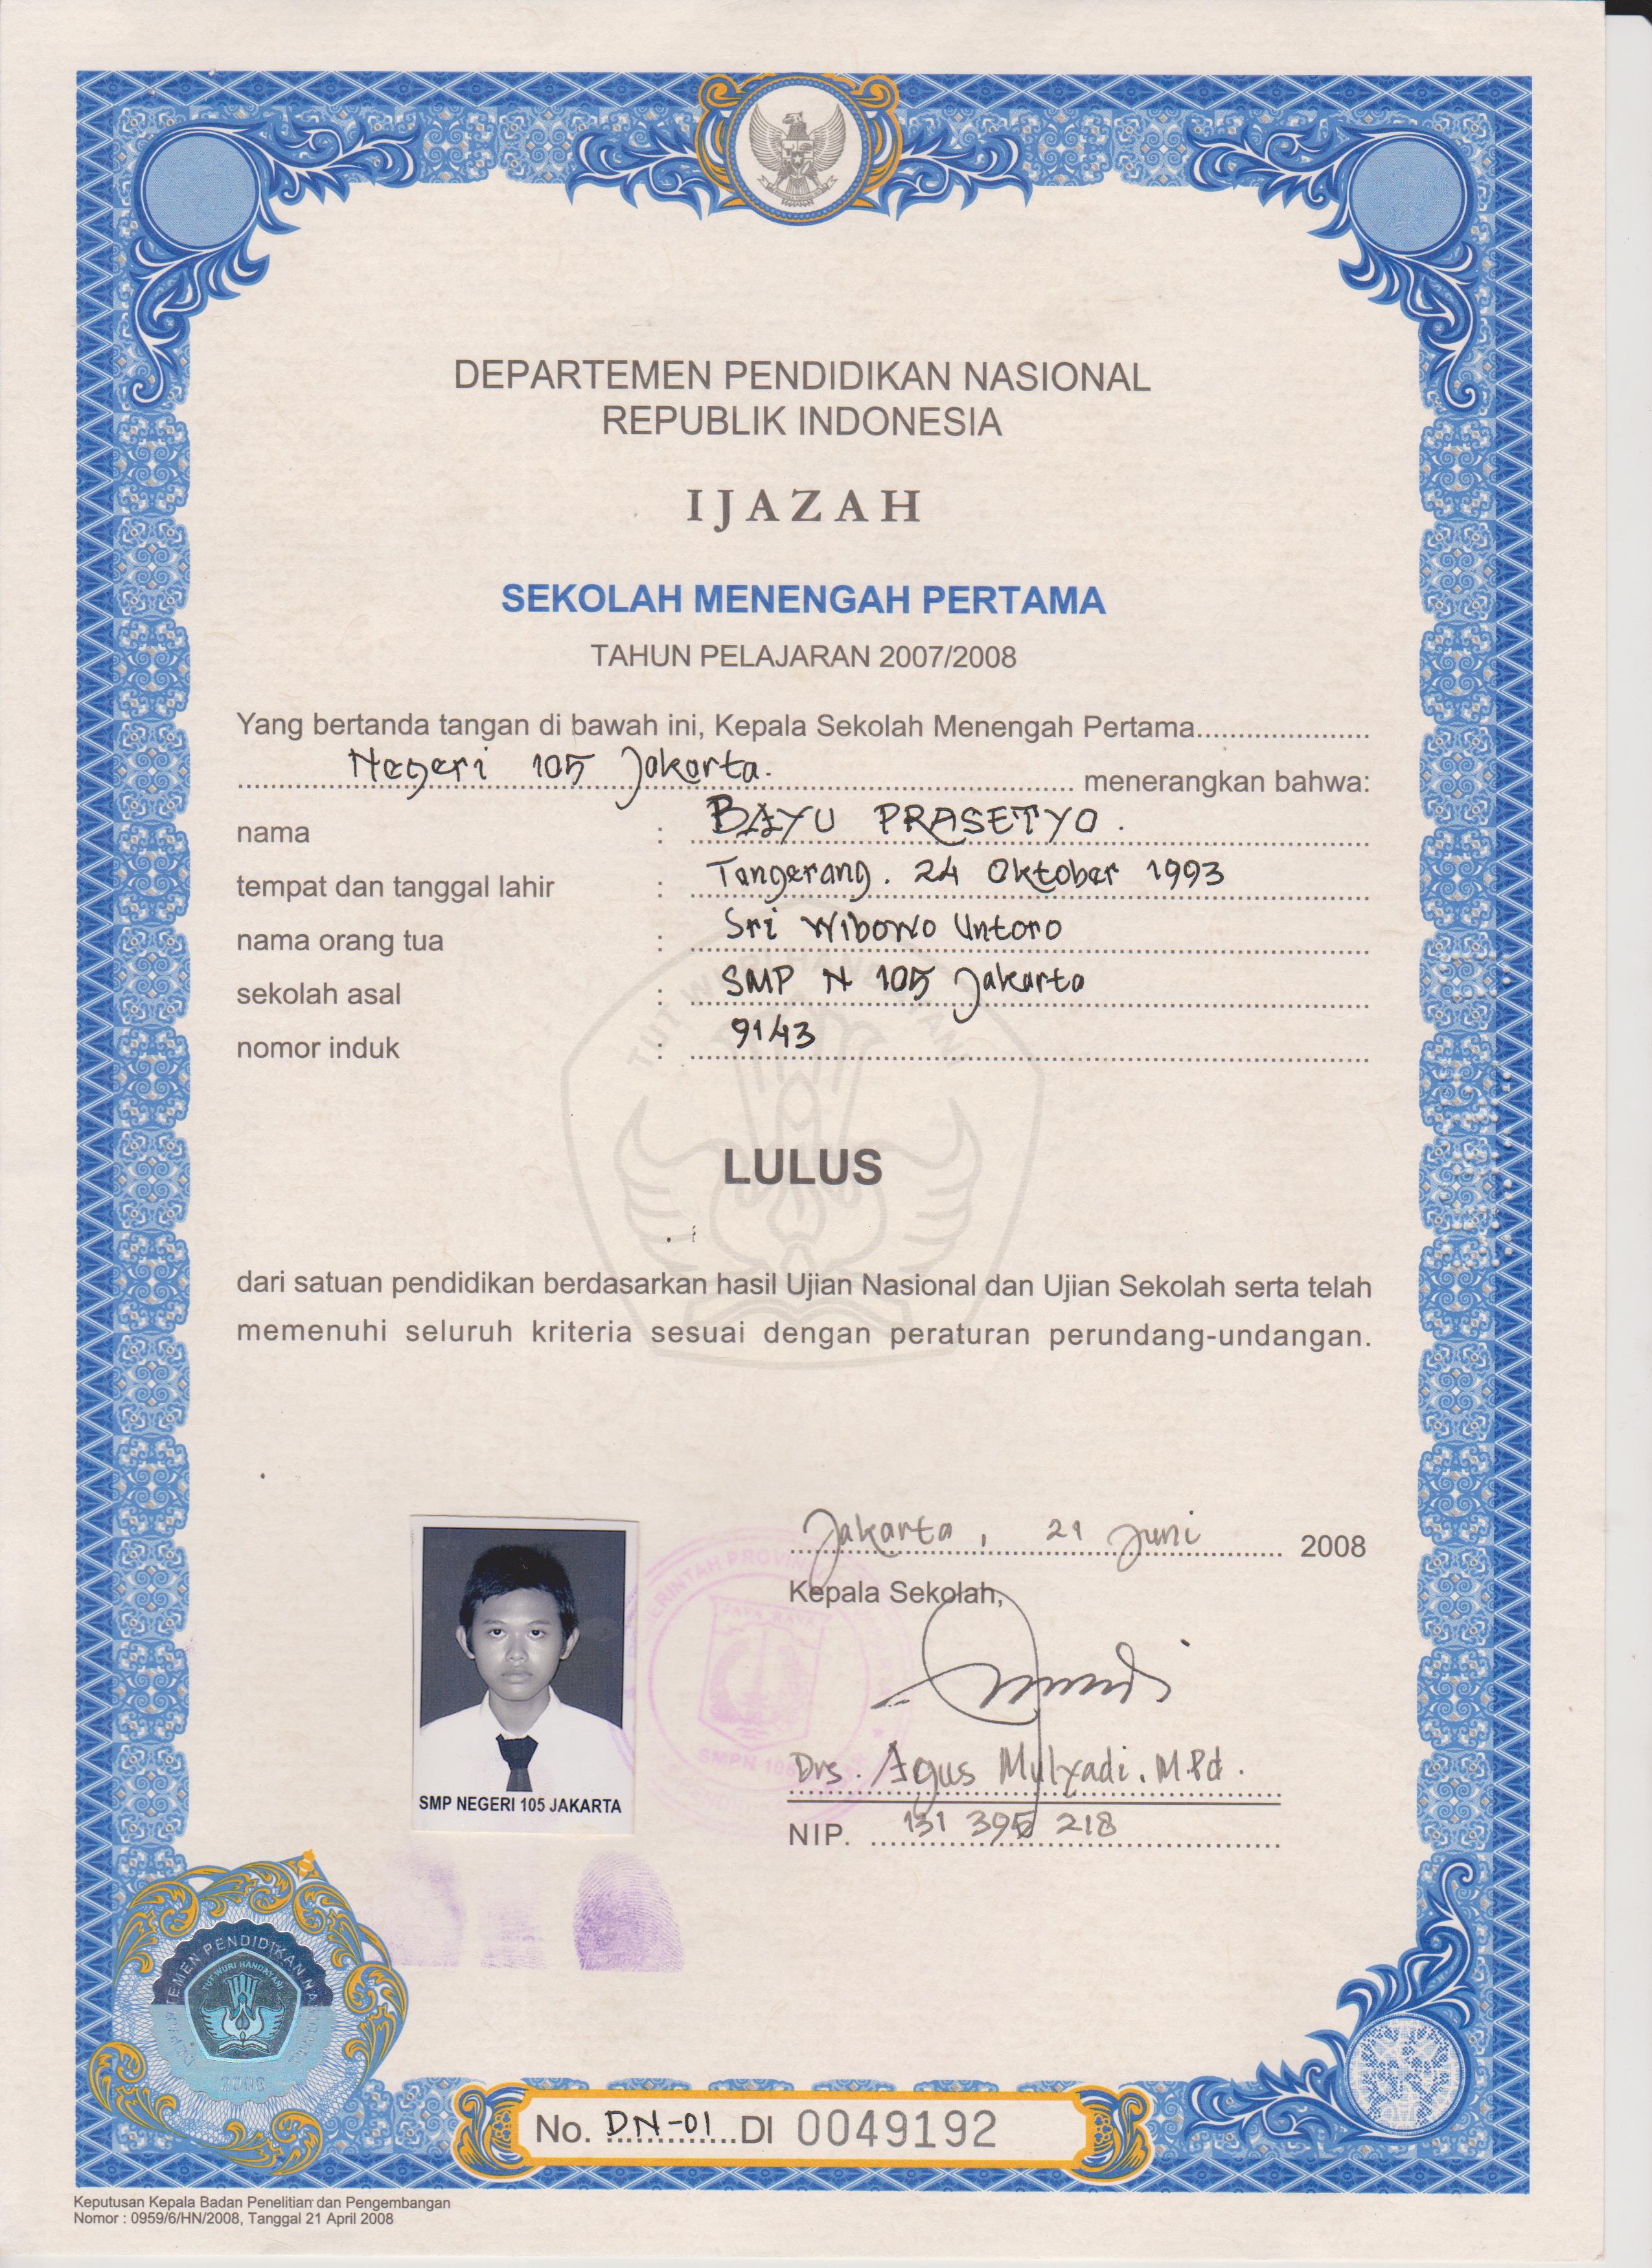 DEPARTEMEN PENDIDIKAN NASIONAL
REPUBLIK INDONESIA
IJAZAH
SEKOLAH MENENGAH PERTAMA
TAHUN PELAJARAN 2007/2008
Yang bertanda tangan di bawah ini, Kepala Sekolah Menengah Pertama....................
Negeri 105 Jakarta. menerangkan bahwa:
nama : BAYU PRASETYO.
tempat dan tanggal lahir : Tangerang. 24 Oktober 1993
nama orang tua : Sri Wibowo Untoro
sekolah asal : SMP N 105 Jakarta
nomor induk : 9143
TUT WURI HANDAYANI
LULUS
dari satuan pendidikan berdasarkan hasil Ujian Nasional dan Ujian Sekolah serta telah
memenuhi seluruh kriteria sesuai dengan peraturan perundang-undangan.
Jakarta, 21 Juni 2008
Kepala Sekolah,
PROVINSI
JAYA RAYA
SMPN 105
Drs. Agus Mulyadi. MPd.
NIP. 131 395 218
SMP NEGERI 105 JAKARTA
PENDIDIKAN
TUT WURI HANDAYANI
2008
No. DN-01 DI 0049192
Keputusan Kepala Badan Penelitian dan Pengembangan
Nomor : 0959/6/HN/2008, Tanggal 21 April 2008